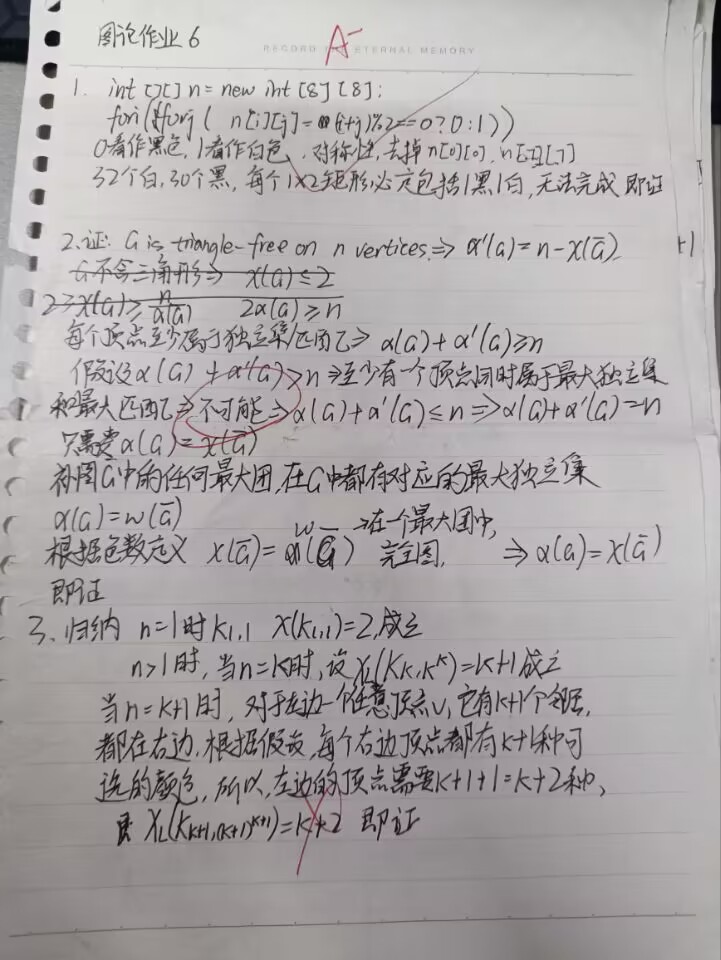 图论作业6
A-
RECORD THE ETERNAL MEMORY
1. int [][] n = new int [8][8];
fori( forj( n[i][j] = (i+j)%2==0?0:1))
0看作黑色,1看作白色,对称性,去掉n[0][0], n[7][7]
32个白,30个黑,每个1×2矩形必定包括1黑1白,无法完成 即证
2.证: G is triangle-free on n vertices. ⇒ α'(G) = n - χ(G̅)
+1
G不含三角形 ⇒ χ(G) ≤ 2
2 ≥ χ(G) ≥ n/α(G) 2α(G) ≥ n
每个顶点至少属于独立集/匹配 ⇒ α(G) + α'(G) ≥ n
假设α(G) + α'(G) > n ⇒ 至少有一个顶点同时属于最大独立集
和最大匹配 ⇒ 不可能 ⇒ α(G) + α'(G) ≤ n ⇒ α(G) + α'(G) = n
只需要α(G) = χ(G̅)
补图G中的任何最大团,在G中都有对应的最大独立集
α(G) = w(G̅)
根据色数定义 χ(G̅) = w(G̅) →在一个最大团中, 完全图, ⇒ α(G) = χ(G̅)
即证
3. 归纳 n=1时 K1,1 χ(K1,1) = 2,成立
n>1时,当n=k时,设χL(Kk,k^k) = k+1成立
当n=k+1时,对于左边一个任意顶点v,它有k+1个邻居,
都在右边.根据假设,每个右边顶点都有k+1种可
选的颜色,所以,左边的顶点需要k+1+1=k+2种,
χL(Kk+1,(k+1)^k+1) = k+2 即证